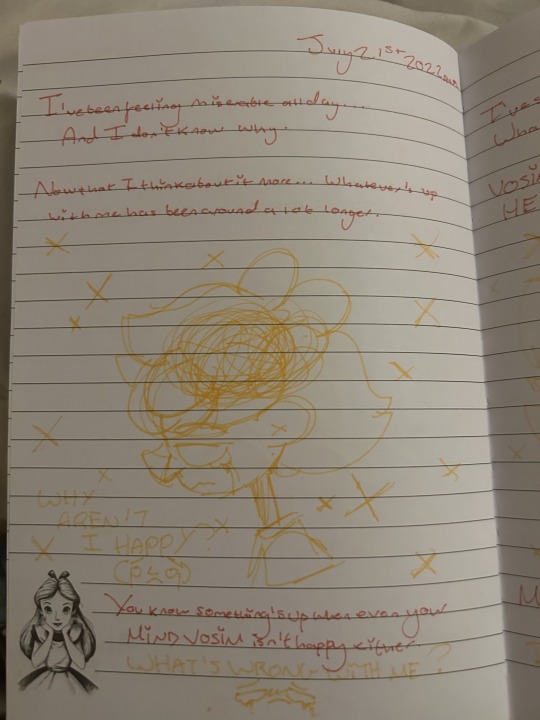 July 21st 2022
I've been feeling miserable all day...
And I don't know why.
Now that I think about it more... Whatever's up
with me has been around a lot longer.
WHY
AREN'T
I HAPPY?
You know something's up when even your
MIND VOSIM isn't happy either.
WHAT'S WRONG WITH ME?
I've
Wha
VOSIM
HE
M